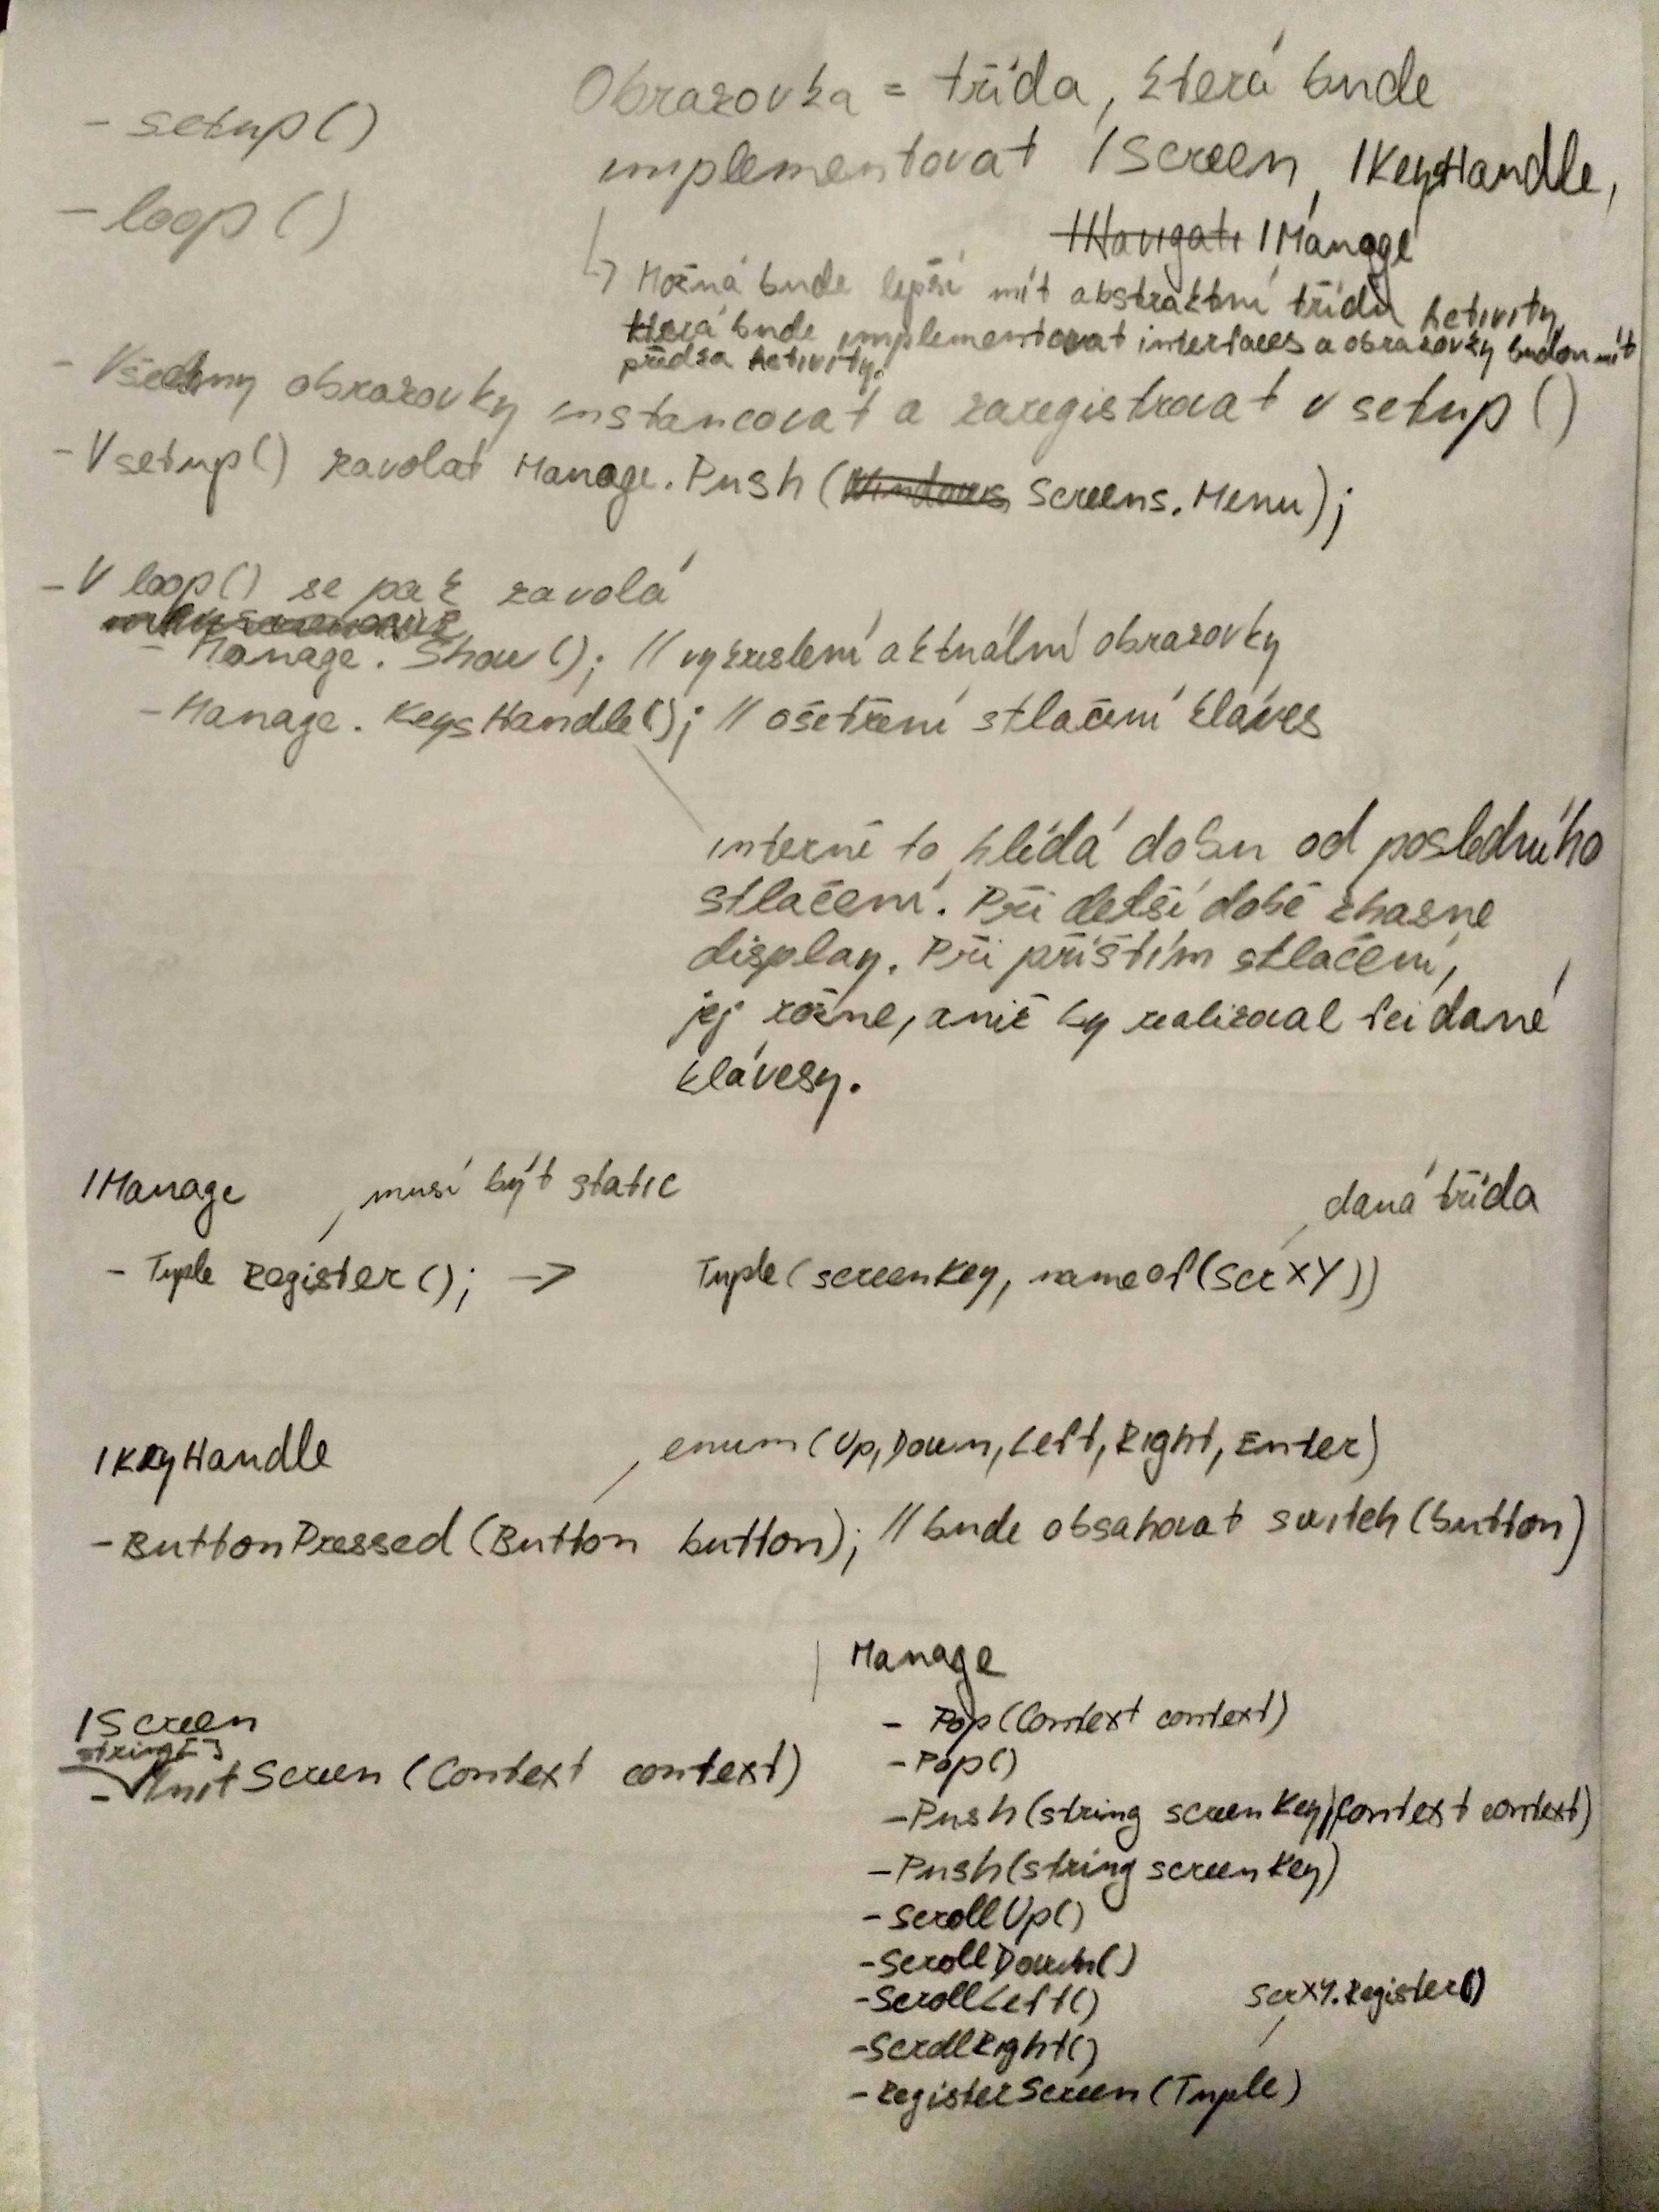 - setup()
- loop()
Obrazovka = třída, která bude
implementovat IScreen, IKeyHandle,
INavigate IManage
↳ Možná bude lepší mít abstraktní třídu Activity,
která bude implementovat interfaces a obrazovky budou mít
předka Activity.
- Všechny obrazovky instancovat a zaregistrovat v setup()
- V setup() zavolat Manage.Push(Windows Screens.Menu);
- V loop() se pak zavolá
- Manage.Show(); // vykreslení aktuální obrazovky
- Manage.KeysHandle(); // ošetření stlačení kláves
interně to hlídá dobu od posledního
stlačení. Při delší době zhasne
display. Při příštím stlačení,
jej rožne, aniž by realizoval fci dané
klávesy.
IManage
musí být static
daná třída
- Tuple Register(); -> Tuple(screenKey, nameof(ScrXY))
IKeyHandle
enum(Up, Down, Left, Right, Enter)
- ButtonPressed(Button button); // bude obsahovat switch(button)
IScreen
string[]
- InitScreen(Context context)
Manage
- Pop(Context context)
- Pop()
- Push(string screenKey, Context context)
- Push(string screenKey)
- ScrollUp()
- ScrollDown()
- ScrollLeft()
- ScrollRight()
ScrXY.Register()
- RegisterScreen(Tuple)